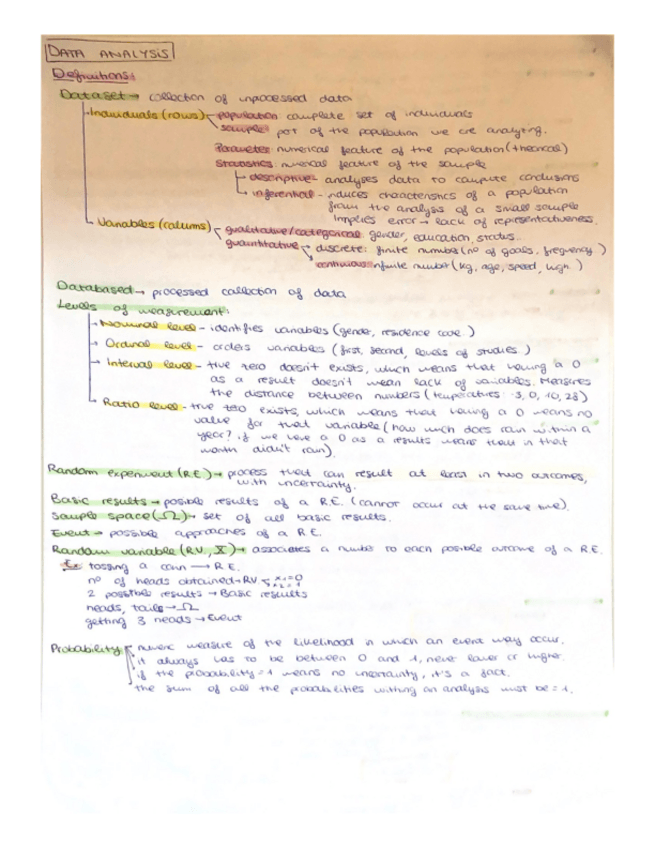 DATA ANALYSIS
Definitions:
Dataset → collection of unpocessed data
Individuals (rows) population: complete set of individuals
sample: part of the population we are analyzing.
Parameter: numerical feature of the population (theorical)
Statistics: numerical feature of the sample
descriptive: analyses data to compute conclusions
inferential - induces characteristics of a population
from the analysis of a small sample
Implies error → lack of representativeness.
Variables (colums) qualitative/categorical: gender, education, status...
quantitative discrete: finite number (nº of goals, frequency...)
continuous: infinite number (kg, age, speed, high...)
Databased → processed collection of data
Levels of measurement:
Nominal level - identifies variables (gender, residence code...)
Ordinal level - orders variables (first, second, levels of studies...)
Interval level - true zero doesn't exists, which means that having a 0
as a result doesn't mean lack of variables. Measures
the distance between numbers (temperatures: -3, 0, 10, 28)
Ratio level - true zero exists, which means that having a 0 means no
value for that variable (how much does rain within a
year? if we have a 0 as a results means that in that
month didn't rain).
Random experiment (R.E.) → process that can result at least in two outcomes,
with uncertainty.
Basic results → posible results of a R.E. (cannot occur at the same time).
Sample space (Ω) → set of all basic results.
Event → possible approaches of a R.E.
Random variable (RV, X) → associates a number to each posible outcome of a R.E.
Ex: tossing a coin → R.E.
nº of heads obtained → RV x₁=0
x₂=1
2 possible results → Basic results
heads, tails → Ω
getting 3 heads → Event
Probability numeric measure of the likelihood in which an event may occur.
it always has to be between 0 and 1, never lower or higher.
if the probability = 1 means no uncertainty, it's a fact.
the sum of all the probabilities withing an analysis must be = 1.